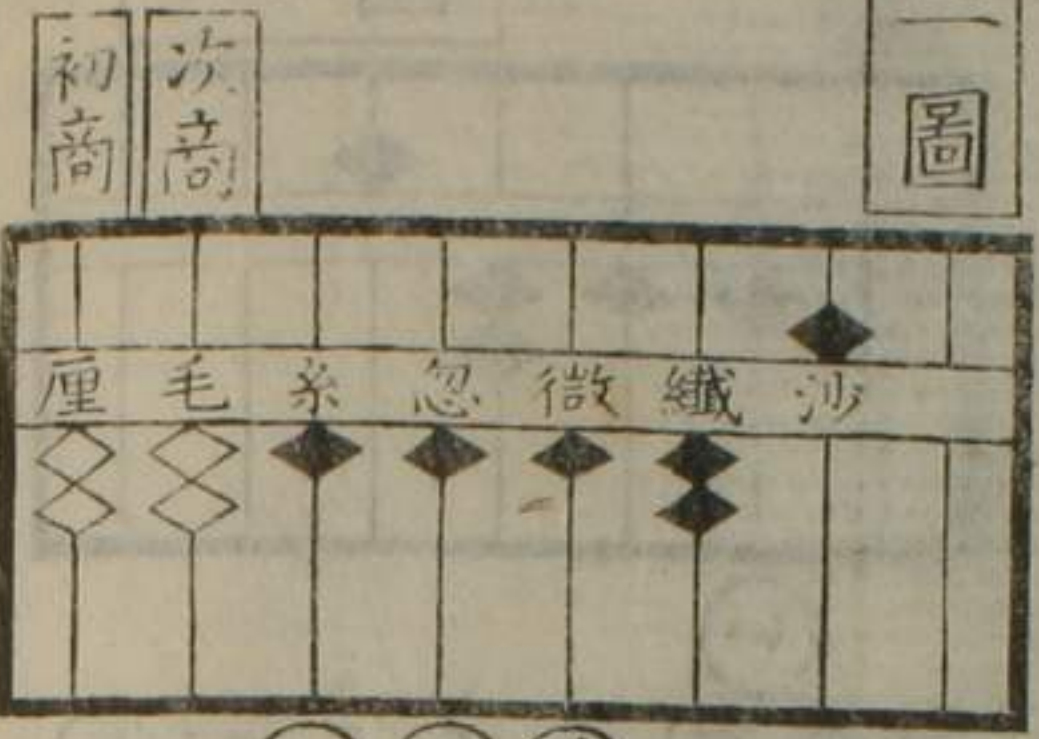 一圖
初商
次商
厘毛糸忽微纖沙